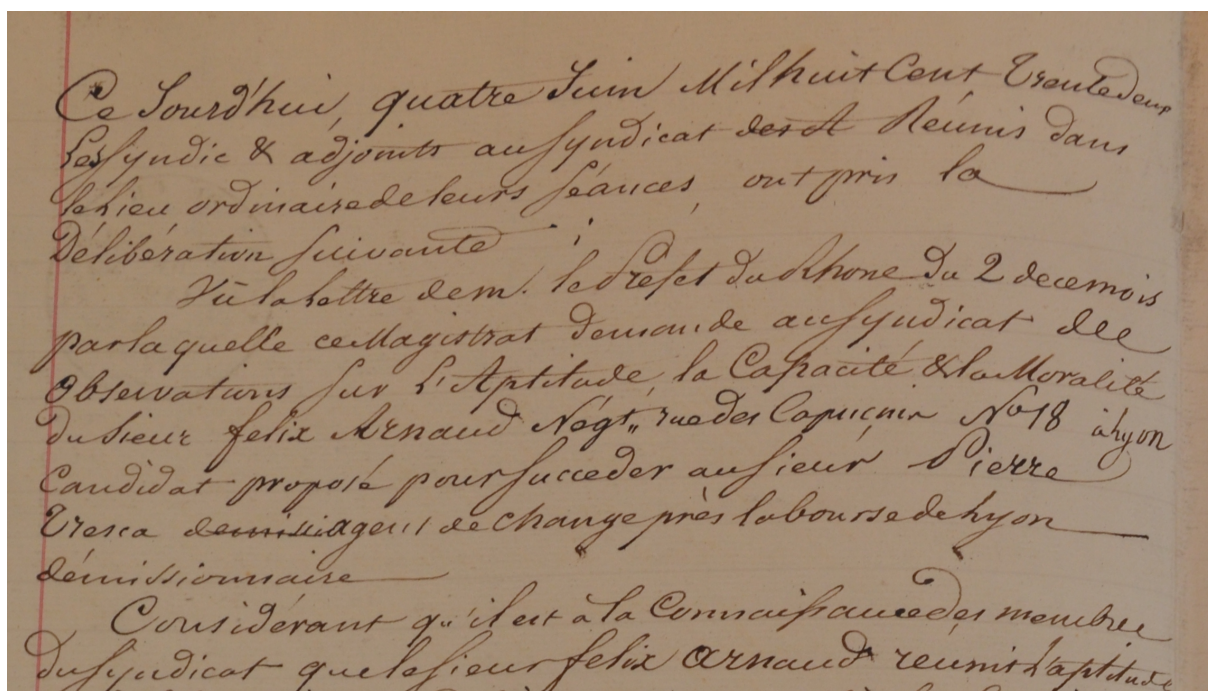 Ce Jourd'hui, quatre Juin Mil huit Cent Trente deux
Les Syndic & adjoints au Syndicat des A Réunis dans
le Lieu ordinaire de leurs Séances, ont pris la
Délibération Suivante ;
Vû la Lettre de M. le Préfet du Rhone du 2 de ce mois
par laquelle ce Magistrat demande au Syndicat des
Observations sur L'Aptitude, la Capacité & la Moralité
du Sieur felix Arnaud Négt,, rue des Capucins No 18 à Lyon
Candidat proposé pour succeder au Sieur Pierre
Tresca agent de change près la bourse de Lyon
démissionnaire
Considérant qu'il est à la Connaissance des membres
du Syndicat que le Sieur felix Arnaud réunit L'aptitude